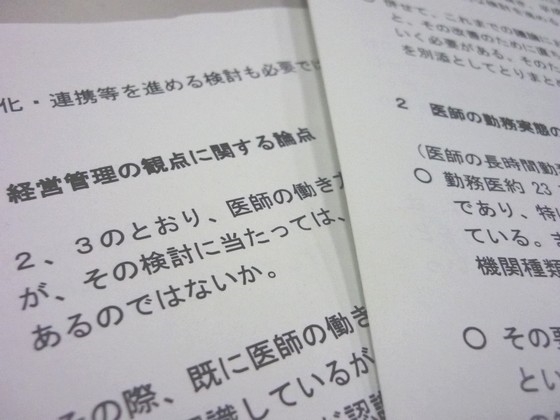 化・連携等を進める検討も必要では
経営管理の観点に関する論点
２、３のとおり、医師の働き方
が、その検討に当たっては、
あるのではないか。
その際、既に医師の働き
識しているが
認識
併せて、これまでの議論
と、その改善のために重
いく必要がある。そのた
を別添としてとりまと
２　医師の勤務実態の
（医師の長時間勤
○　勤務医約 23
であり、特
ている。
機関種類
○　その要
とい